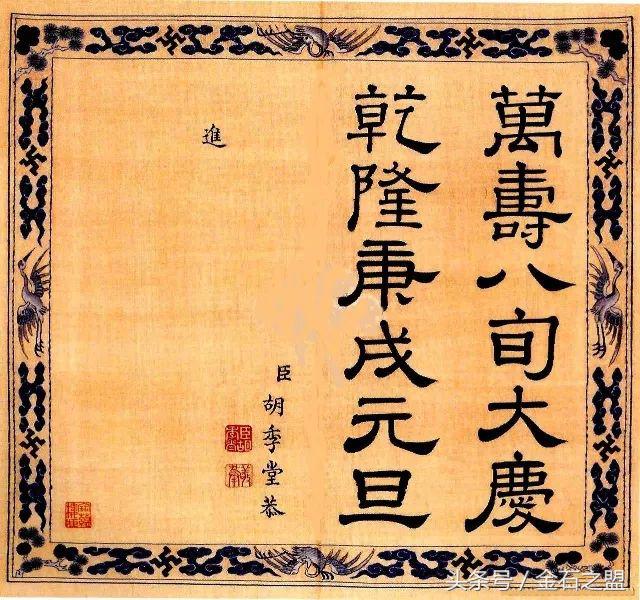 萬壽八旬大慶
乾隆庚戌元旦
臣胡季堂恭
進
头条号／金石之盟